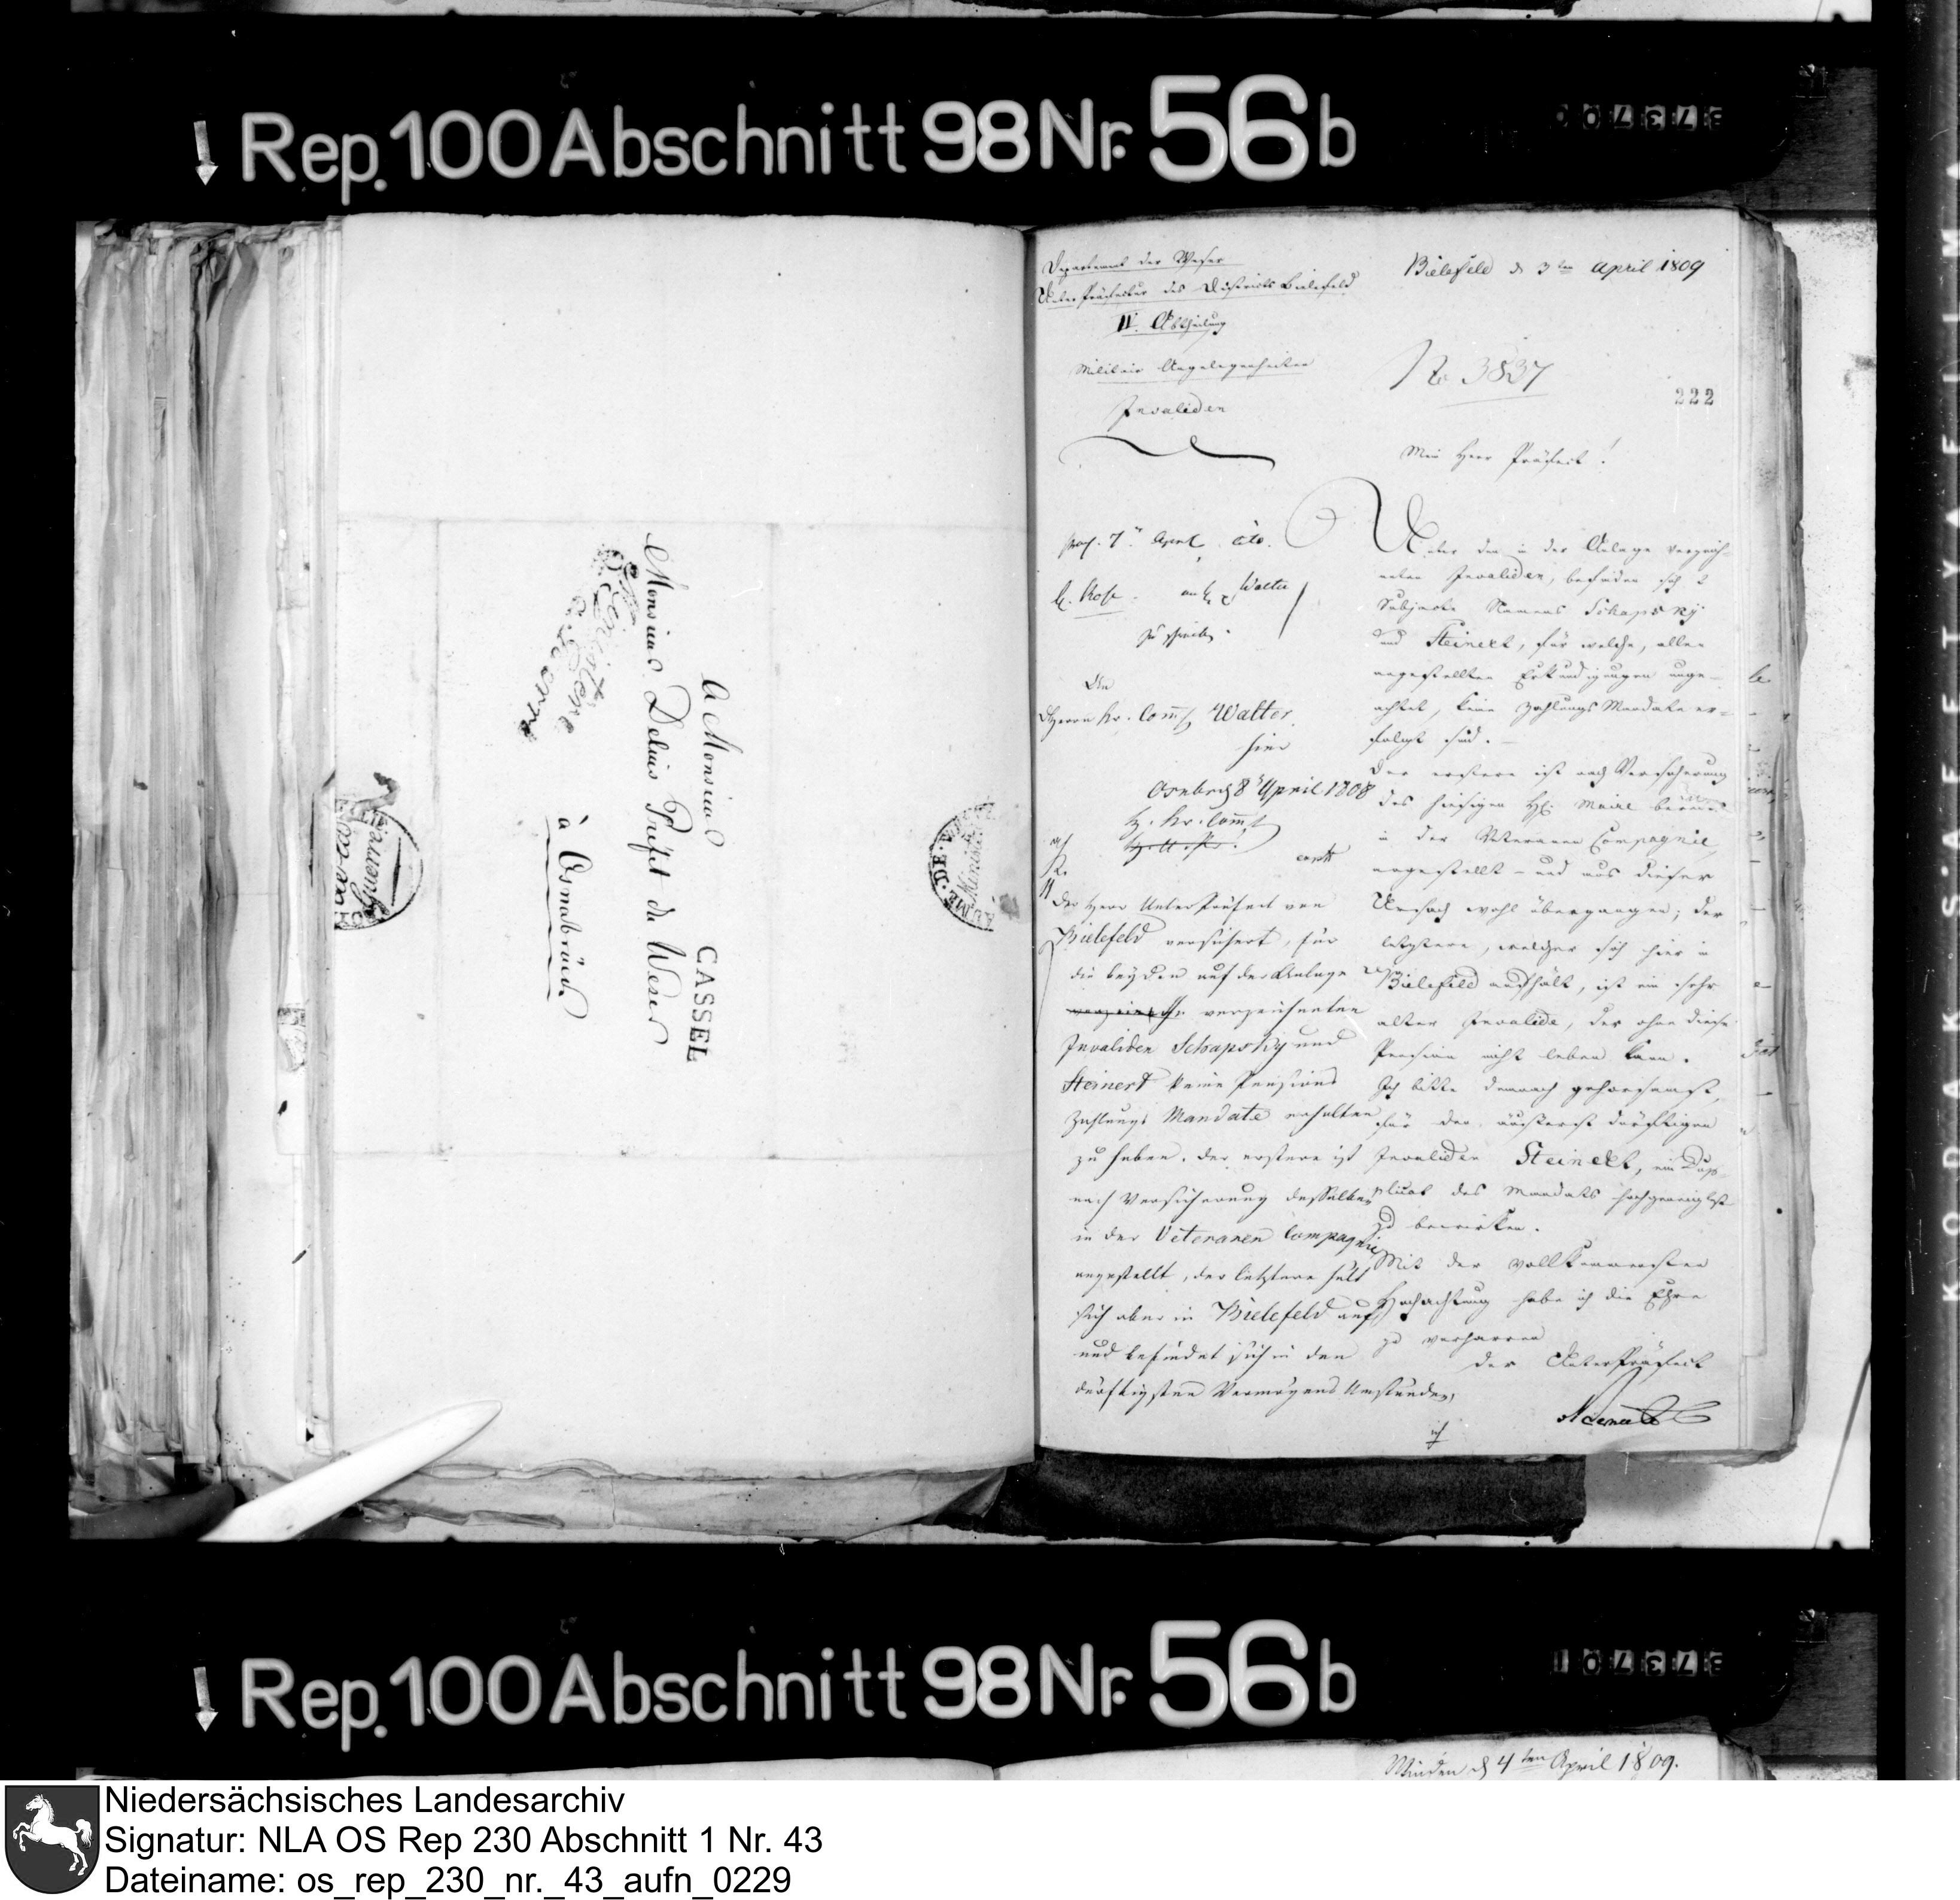 Rep. 100 Abschnitt 98 Nr. 56b
A Monsieur
Monsieur Delius Préfet du Weser
à Osnabrück
CASSEL
Departement der Weser
UnterPräfectur des Districts Bielefeld
II. Abtheilung
Militair Angelegenheiten
Invaliden
Bielefeld d 3ten April 1809
No 3837
222
Mein Herr Präfect!
Unter den in der Anlage verzeich-
neten Invaliden, befinden sich 2
Subjecte Namens Schapsky
und Steinert, für welche, aller
angestellten Erkundigungen unge-
achtet, keine Zahlungs Mandate er-
folgt sind.
Der erstere ist nach Versicherung
des hiesigen H. Maire bereits
in der Veteranen Compagnie
angestellt - und aus dieser
Ursach wohl übergangen; der
letztere, welcher sich hier in
Bielefeld aufhält, ist ein sehr
alter Invalide, der ohne diese
Pension nicht leben kann.
Ich bitte demnach gehorsamst,
für den äusserst dürftigen
Invaliden Steinert, ein Dup-
plicat des Mandats hochgeneigtest
zu bewirken.
Mit der vollkommensten
Hochachtung habe ich die Ehre
zu verharren
der UnterPräfect
7 April cito.
Walter
zu schreiben.
An
Herrn Kr. Comm. Walter
hier
Osnbrch 8 April 1808
H. Kr. Comm.
Der Herr UnterPräfect von
Bielefeld versichert, für
die beyden auf der Anlage
verzeichneten
Invaliden Schapsky und
Steinert keine Pensions
Zahlungs Mandate erhalten
zu haben. der erstere ist
nach Versicherung desselben
in der Veteranen Compagnie
angestellt, der letztere hält
sich aber in Bielefeld auf,
und befindet sich in den
dürftigsten Vermögens Umständen,
ich
Rep. 100 Abschnitt 98 Nr. 56b
Minden d 4ten April 1809.
Niedersächsisches Landesarchiv
Signatur: NLA OS Rep 230 Abschnitt 1 Nr. 43
Dateiname: os_rep_230_nr._43_aufn_0229